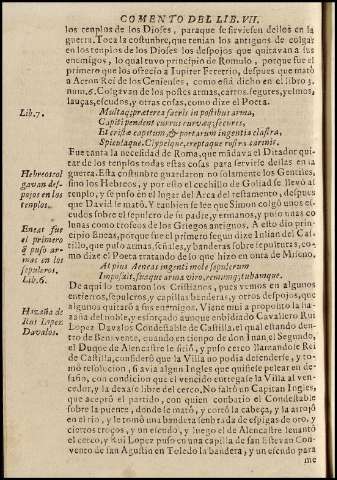 COMENTO DEL LIB. VII.
los templos de los Dioses, paraque se sirviesen dellos en la
guerra. Toca la costunbre, que tenian los antiguos de colgar
en los templos de los Dioses los despojos que quitavan a sus
enemigos, lo qual tuvo principio de Romulo, porque fue el
primero que los ofrecio a Jupiter Feretrio, despues que matò
a Acron Rei de los Genienses, como està dicho en el libro 3.
num. 6. Colgavan de los postes armas, carros, segures, yelmos,
lanças, escudos, y otras cosas, como dize el Poeta.
Lib. 7.
Multaq; præterea sacris in postibus arma,
Capti pendent currus curvæq; secures,
Et cristæ capitum, & portarum ingentia claustra,
Spiculaque, Clypeique, ereptaque rostra carinis.
Fue tanta la necesidad de Roma, que mãdava el Ditador qui
tar de los templos todas estas cosas para servirse dellas en la
guerra. Esta costunbre guardaron no solamente los Gentiles,
Hebreos col
gavan des-
pojos en los
templos.
sino los Hebreos, y por esto el cuchillo de Goliad se llevò al
templo, y se puso en el lugar del Arca del testamento, despues
que David le matò. Y tanbien se lee que Simon colgò unos es
cudos sobre el sepulcro de su padre, y ermanos, y puso unas co
lunas como trofeos de los Griegos antiguos. A esto dio prin-
Eneas fue
el primero
q̃ puso ar-
mas en los
sepulcros.
Lib. 6.
cipio Eneas, porque fue el primero segun dize Iulian del Cas
tillo, que puso armas, señales, y banderas sobre sepulturas, co-
mo dize el Poeta tratando de lo que hizo en onra de Miseno.
At pius Aeneas ingenti mole sepulcrum
Imposuit, suaque arma viro, remumq; tubamque.
De aqui lo tomaron los Cristianos, pues vemos en algunos
entierros, sepulcros, y capillas banderas, y otros despojos, que
algunos quitarõ a sus enemigos. Viene mui a proposito la ha-
Hazaña de
Rui Lopez
Davalos.
zaña del noble, y esforçado aunque enbidiado Cavallero Rui
Lopez Davalos Condestable de Castilla, el qual estando den-
tro de Benavente, quando en tienpo de don Iuan el Segundo,
el Duque de Alencastre le sitiò, y puso cerco llamandose Rei
de Castilla, considerò que la Villa no podia defenderse, y to-
mò resolucion, si avia algun Ingles que quisiese pelear en de-
safio, con condicion que el vencido entregase la Villa al ven-
cedor, y la dexase libre del cerco. No faltò un Capitan Ingles,
que aceptò el partido, con quien conbatio el Condestable
sobre la puente, donde le matò, y cortò la cabeça, y la arrojò
en el rio, y le tomò una bandera senbrada de espigas de oro, y
ciertos troços, y un escudo, y luego el de Alencastre levantò
el cerco, y Rui Lopez puso en una capilla de san Estevan Con-
vento de san Agustin en Toledo la bandera, y un escudo para
me